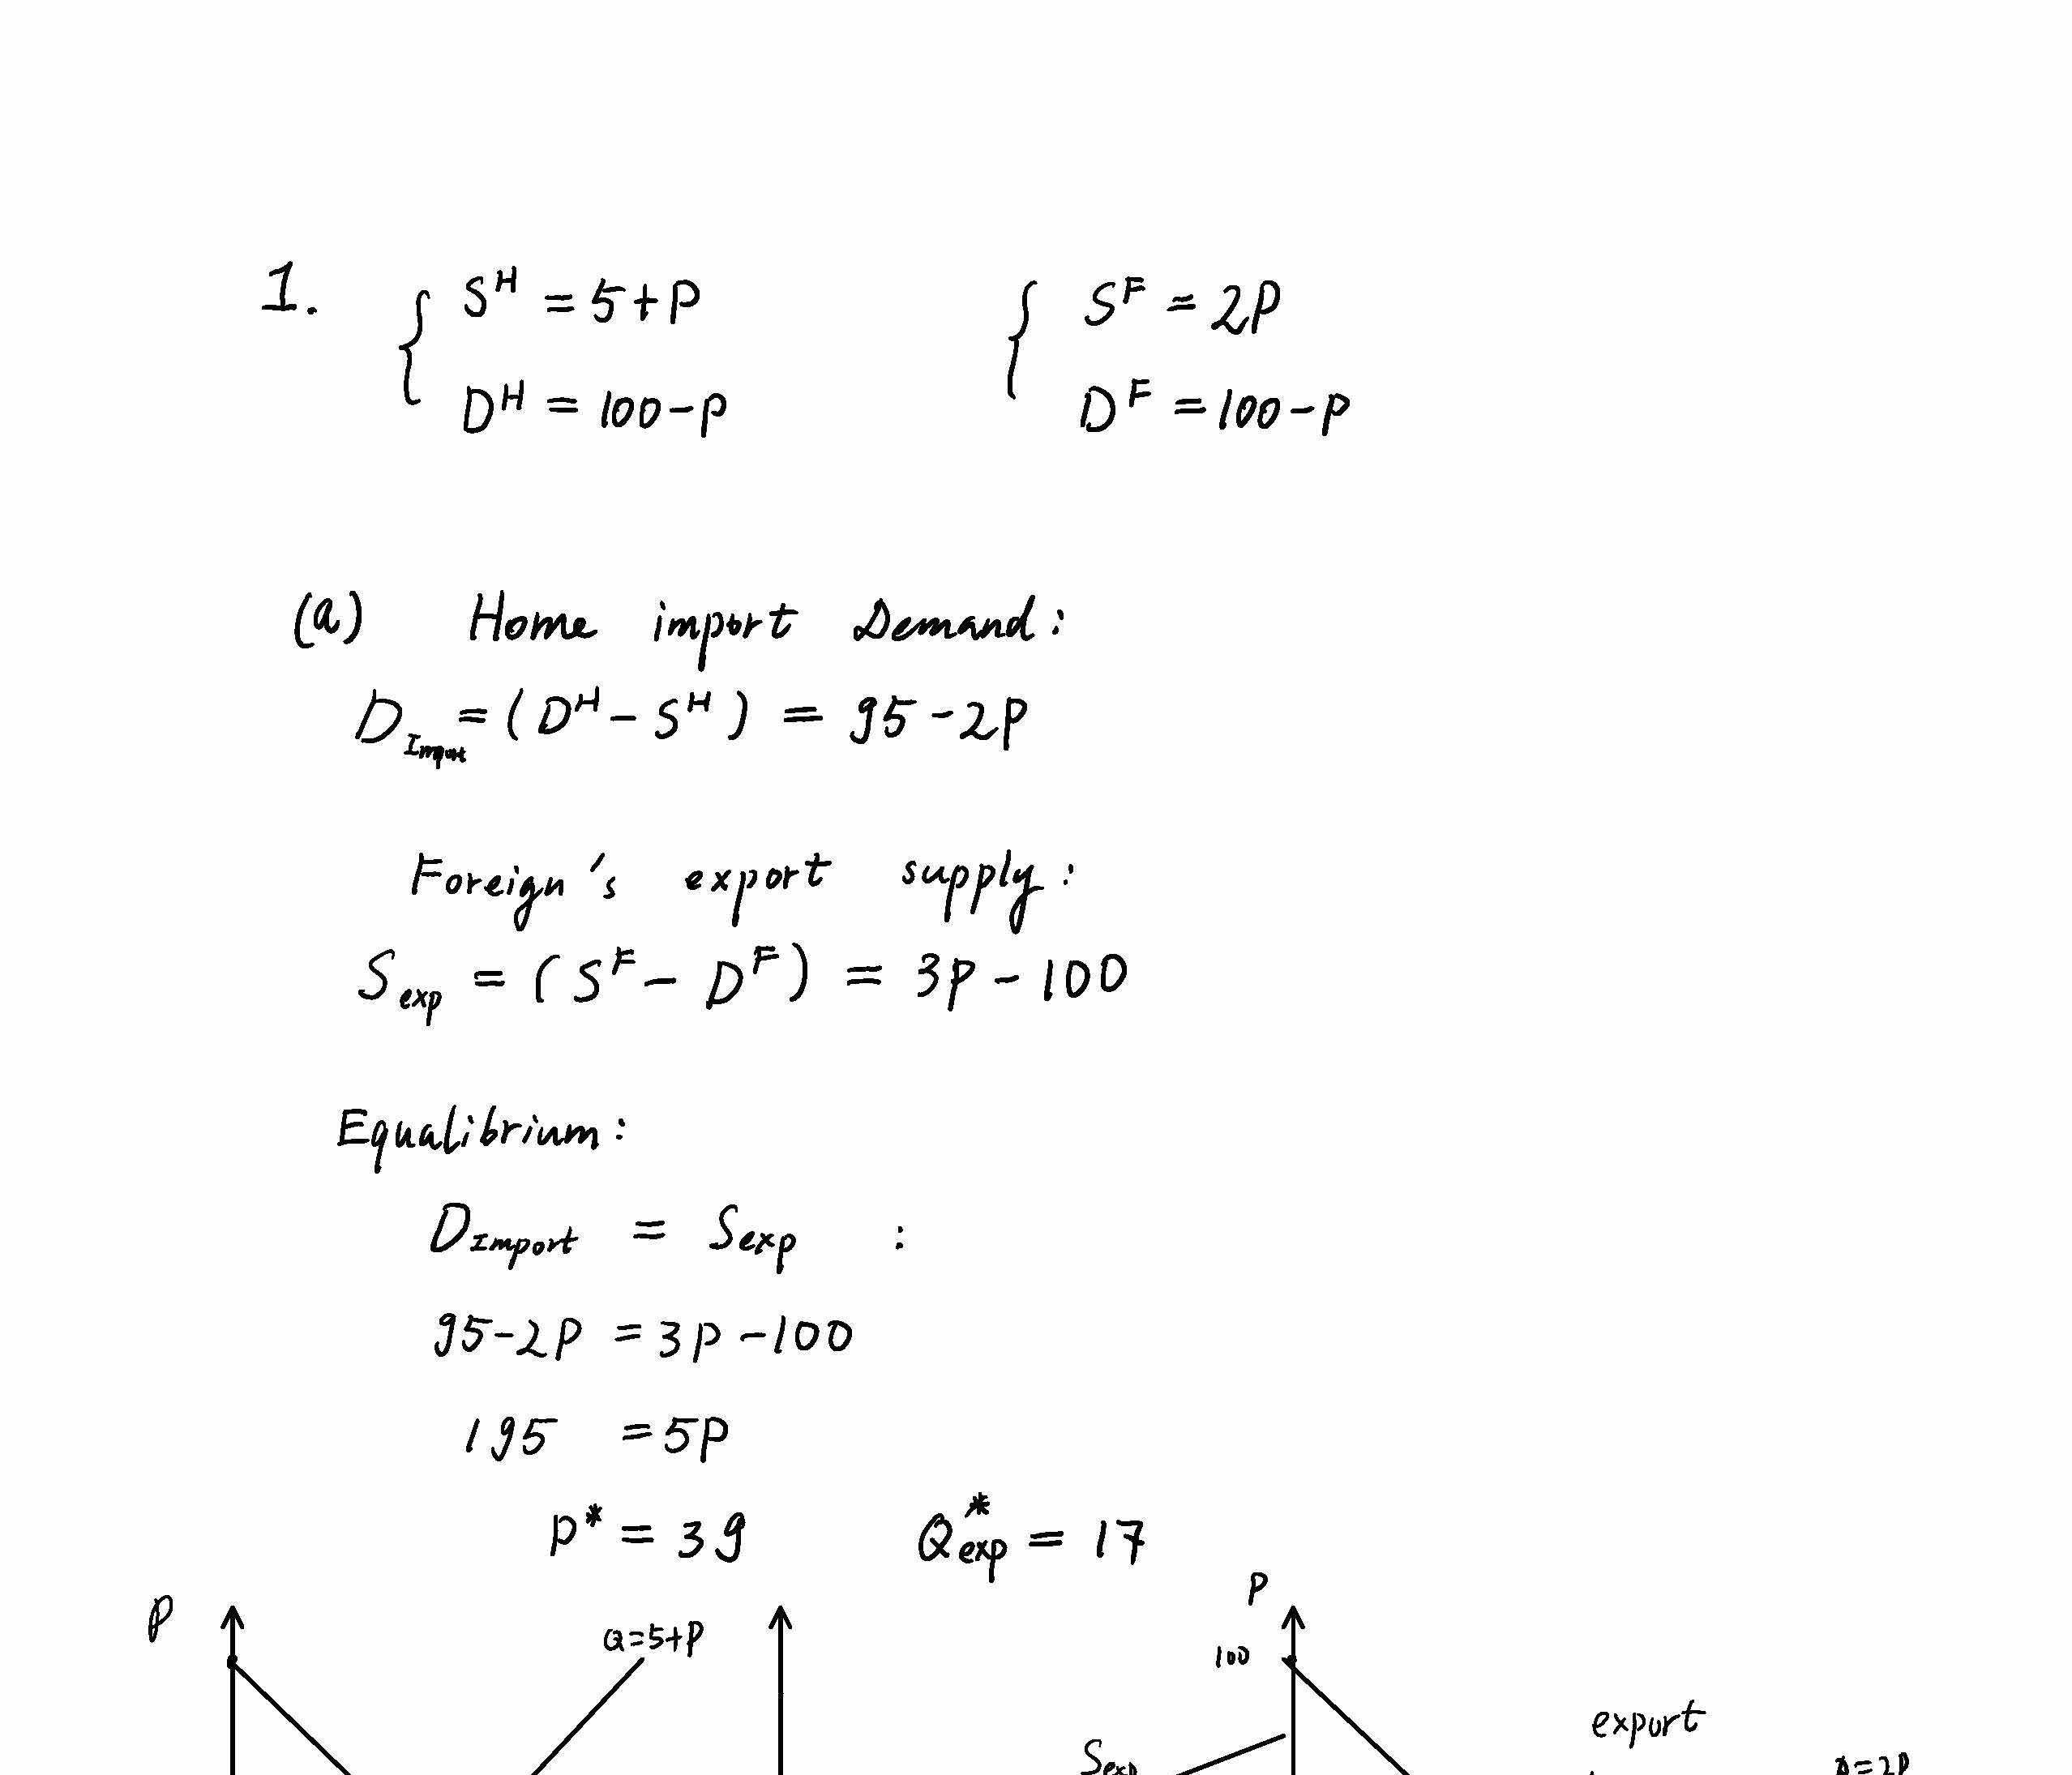 1. { S^H = 5+P { S^F = 2P
D^H = 100-P D^F = 100-P
(a) Home import Demand:
D_Import = (D^H - S^H) = 95-2P
Foreign's export supply:
S_exp = (S^F - D^F) = 3P-100
Equalibrium:
D_Import = S_exp :
95-2P = 3P-100
195 = 5P
P* = 39 Q*_exp = 17
P Q=5+P P
100
export
S_exp Q=2P